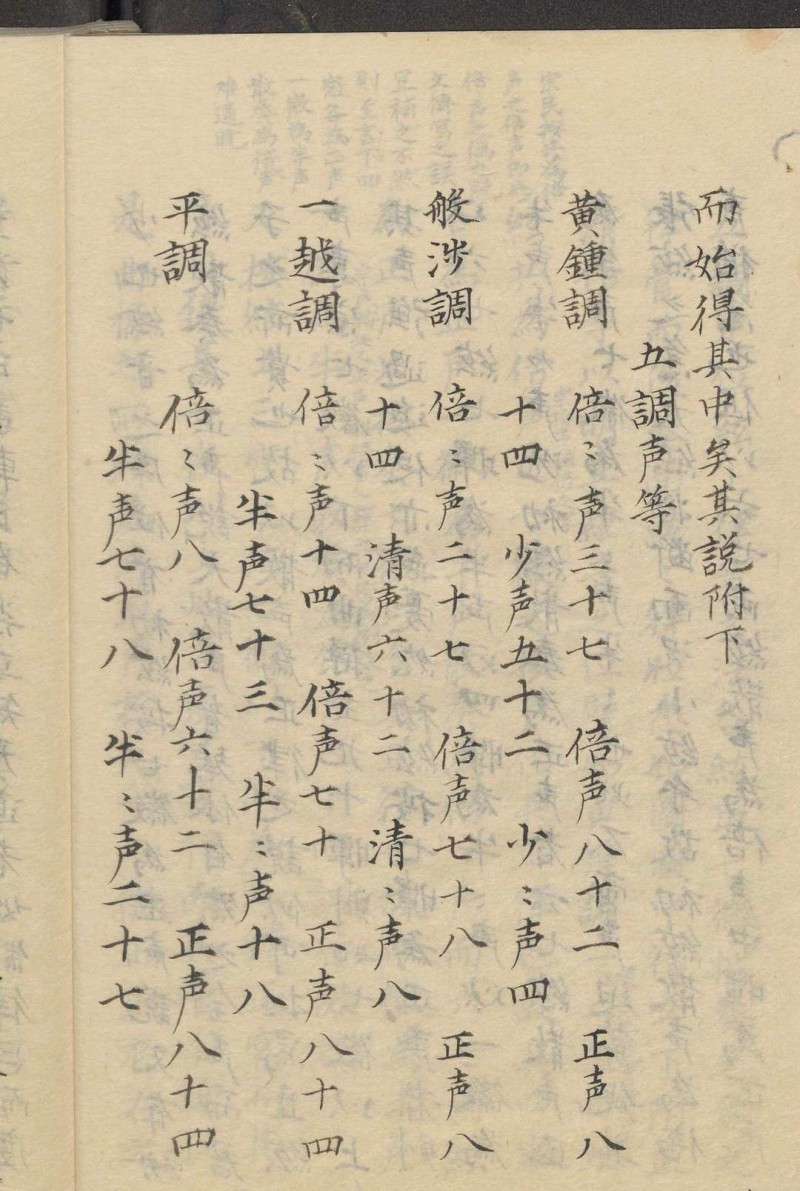 而始得其中矣其説附下
五調声等
黄鍾調 倍〻声三十七 倍声八十二 正声八
十四 少声五十二 少〻声四
般渉調 倍〻声二十七 倍声七十八 正声八
十四 清声六十二 清〻声八
一越調 倍〻声十四 倍声七十 正声八十四
半声七十三 半〻声十八
平調 倍〻声八 倍声六十二 正声八十四
半声七十八 半〻声二十七